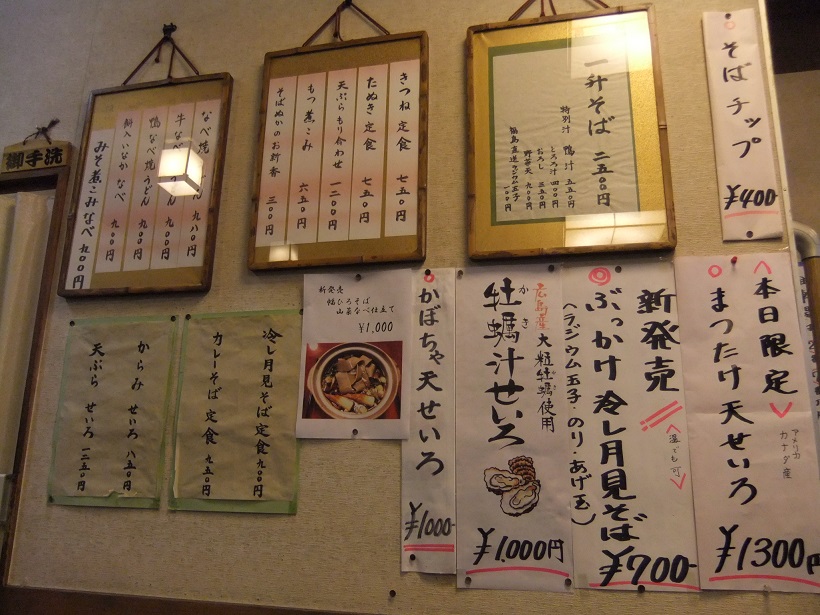 そばチップ
¥400
一升そば 二五〇〇円
特別汁 鴨汁 五五〇円
とろろ汁 四〇〇円
おろし 三五〇円
野菜天 九〇〇円
福島直送ラジウム玉子 一〇〇円
きつね定食 七五〇円
たぬき定食 七五〇円
天ぷらもり合わせ 一二〇〇円
もつ煮こみ 六五〇円
そばぬかのお新香 三〇〇円
なべ焼うどん 九八〇円
牛なべ
鴨なべ焼うどん 九〇〇円
餅入いなかなべ 九〇〇円
みそ煮こみなべ 九〇〇円
御手洗
本日限定
まつたけ天せいろ
アメリカ
カナダ産
¥1300円
新発売
温でも可
ぶっかけ冷し月見そば
(ラジウム玉子・のり・あげ玉)
¥700-
広島産大粒牡蠣使用
牡蠣汁せいろ
かき
¥1.000円
かぼちゃ天せいろ
¥1000-
新発売
幅ひろそば
山菜なべ仕立て
¥1,000
冷し月見そば定食 九〇〇円
カレーそば定食 九五〇円
からみせいろ 八五〇円
天ぷらせいろ 一二五〇円